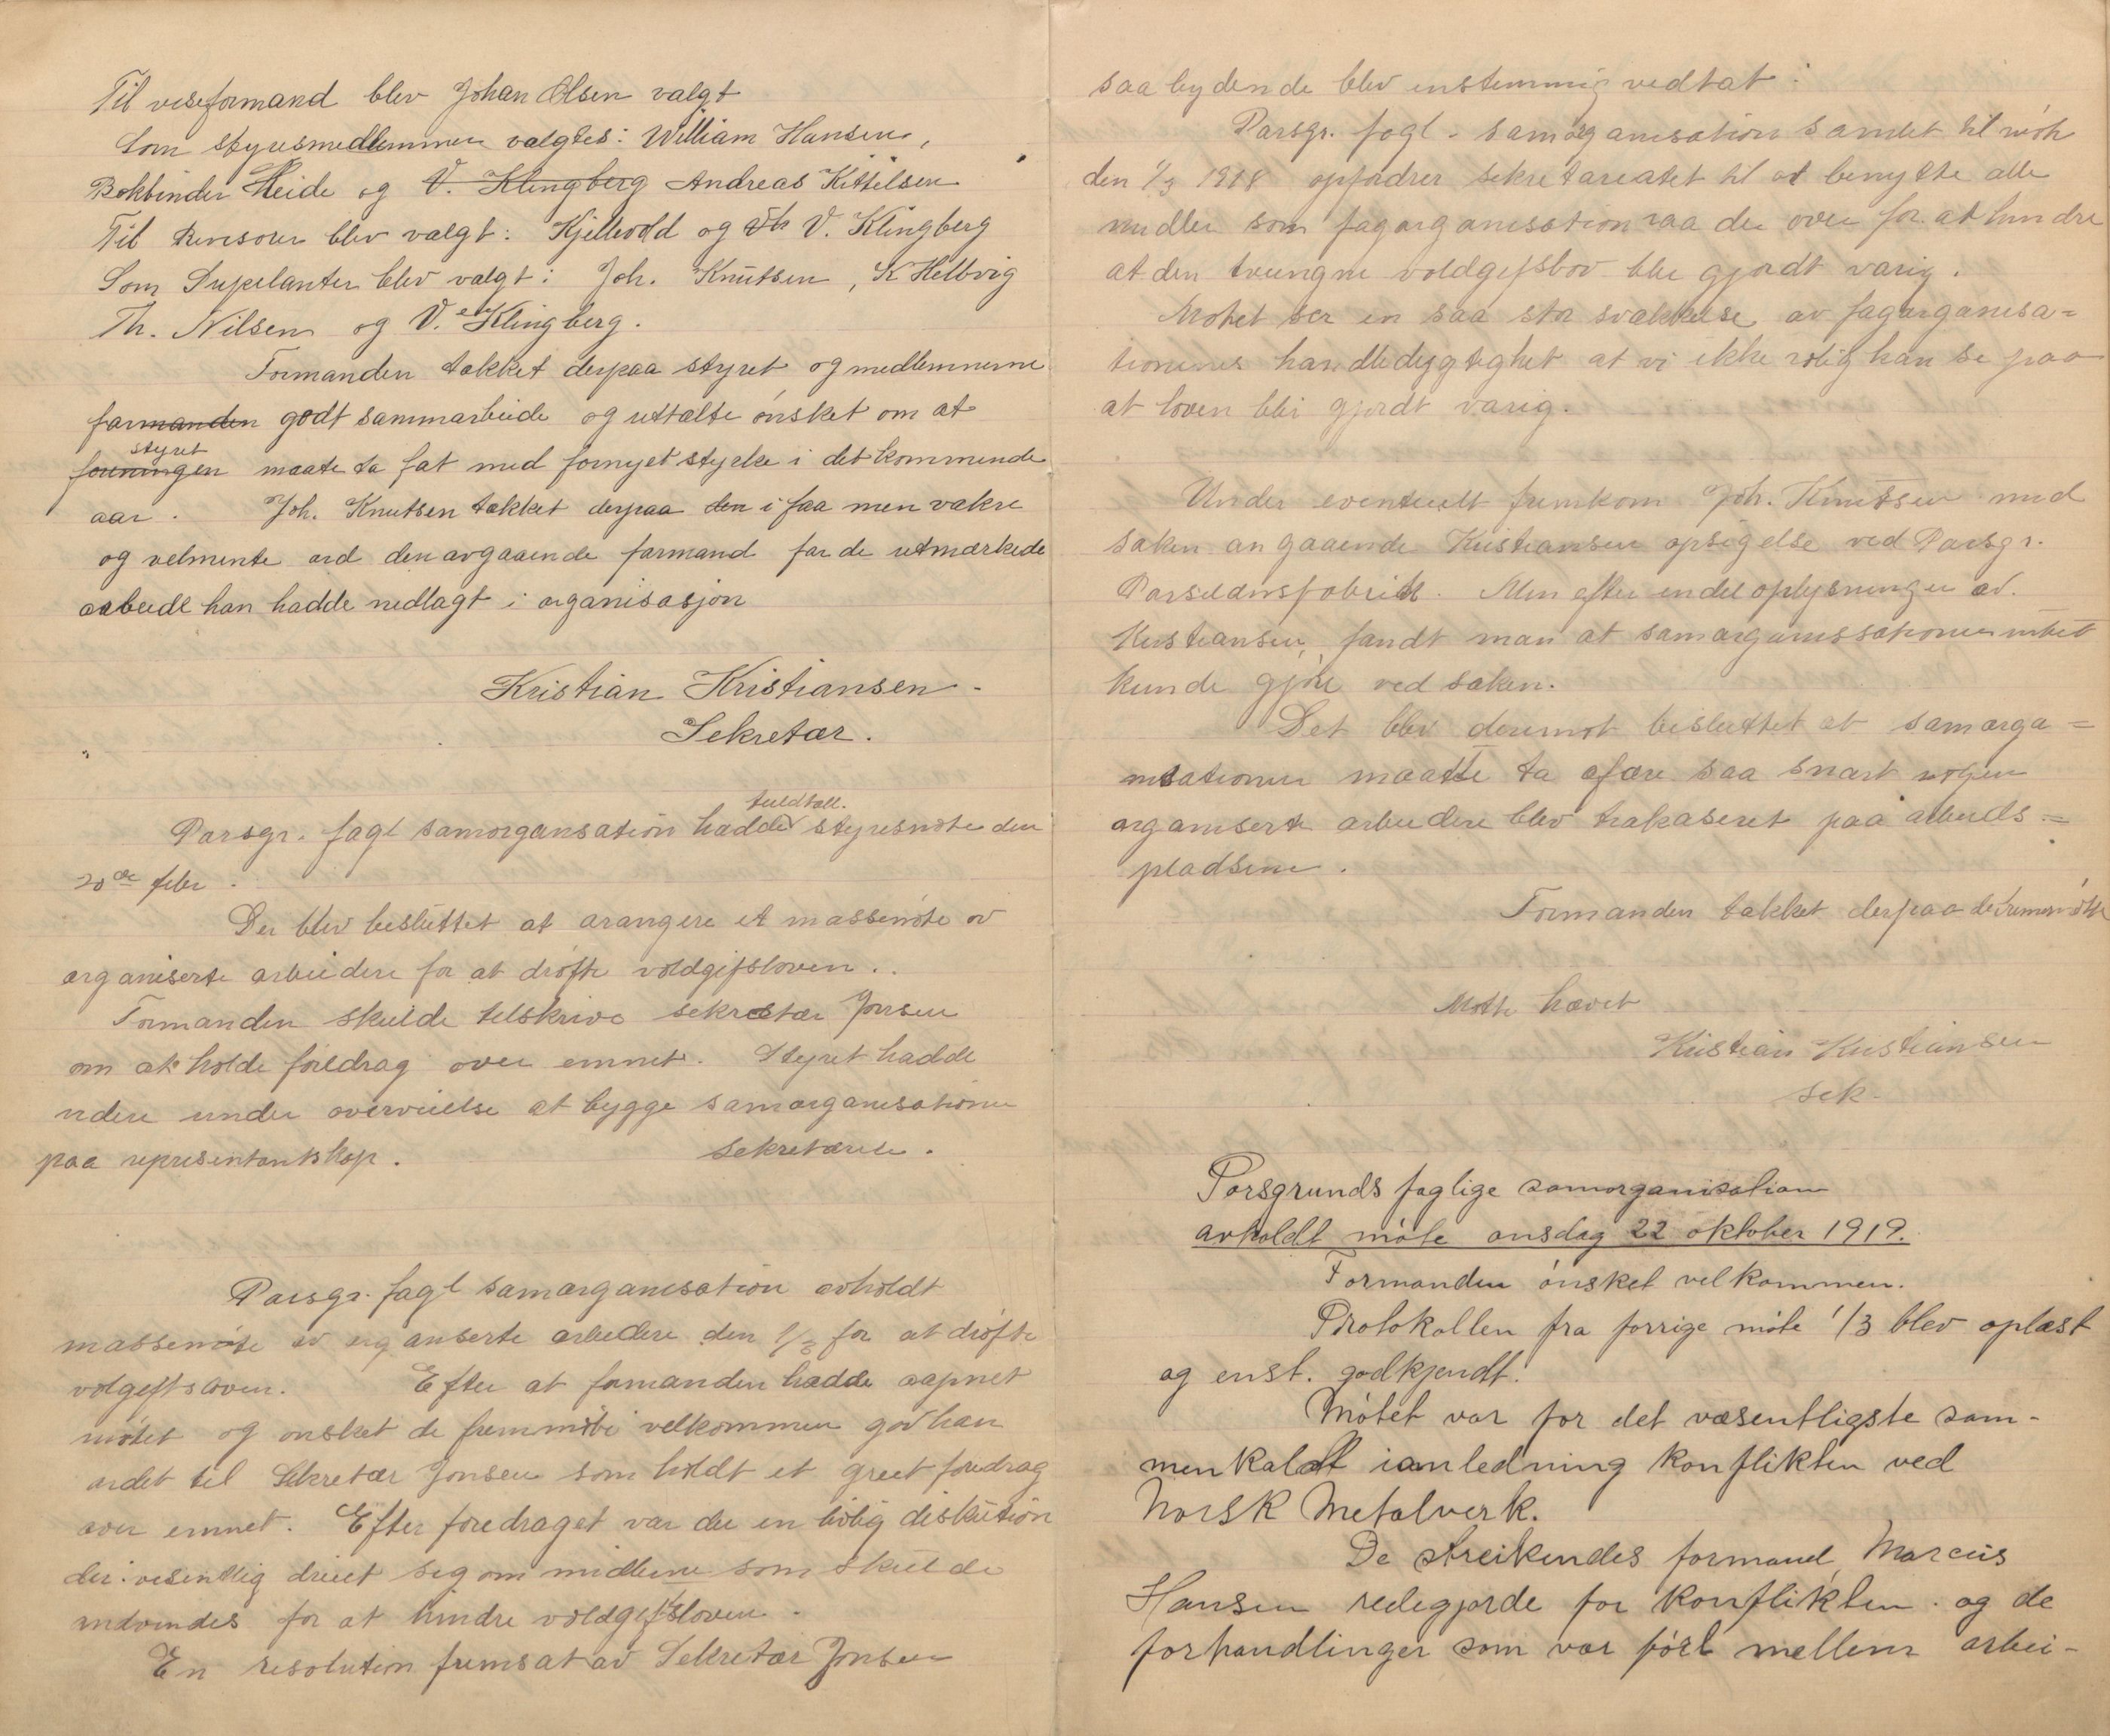 Til viseformand blev Johan Olsen valgt
Som styresmedlemmer valgtes: William Hansen,
Bokbinder Heide og V. Klingberg Andreas Kittelsen
Til Revisorer blev valgt: Kjellvold og V. Klingberg
Som Supelanter blev valgt: Joh. Knutsen, K Helbvig
Th. Nilsen og V. Klingberg.
Formanden takket derpaa styret og medlemmerne
formanden godt sammarbeide og uttalte ønsket om at
styret
foreningen maate ta fat med fornyet styrke i det kommende
aar. Joh. Knutsen takket derpaa den i faa men vakre
og velmente ord den avgaaende formand for de utmærkede
arbeide han hadde nedlagt i organisasjon
Kristian Kristiansen.
Sekretær.
fuldtall.
Porsgr. fagl samorgansation hadde styresmøte den
20de febr.
Der blev besluttet at arangere et massemøte av
organiserte arbeidere for at drøfte voldgifsloven.
Formanden skulde telskrive sekretær Jonsen
om at holde foredrag over emnet. Styret hadde
videre under overveielse at bygge samorganisationen
paa representantskap. Sekretæren.
Porsgr. fagl samorganisation avholdt
massemøte av organserte arbeidere den 1/3 for at drøfte
volgiftsloven. Efter at formanden hadde aapnet
møtet og ønsket de fremmøte velkommen gav han
ordet til Sekretær Jonsen som holdt et greit foredrag
over emnet. Efter foredraget var der en livlig diskution
der vesentlig dreiet seg om midlerne som skulde
anvendes for at hindre voldgiftsloven.
En resolution fremsat av Sekretær Jonsen
saa lydende blev enstemmig vedtat:
Porsgr. fagl. samorganisation samlet til møte
den 1/3 1918 opfodrer sekretareatet til at benytte alle
midler som fagorganisation raa der over for at hindre
at den tvungne voldgifslov blir gjordt varig.
Møtet ser en saa stor svækkelse av fagorganisa=
tionenes handledygtighet at vi ikke rolig kan se paa
at loven bli gjordt varig.
Under eventuelt fremkom Joh. Knutsen med
saken angaaende Kristiansen opsigelse ved Porsgr.
Porselænsfabrik. Men efter endel oplysninger av
Kristiansen, fandt man at samorganissationen intet
kunde gjøre ved saken.
Det blev derimot besluttet at samorga=
nisationen maatte ta afære saa snart nogen
organiserte arbeidere blev trakaseret paa arbeids=
pladsene.
Formanden takket derpaa de fremmøtte
Møtte hævet
Kristian Kristiansen
sek.
Porsgrunds faglige samorganisation
avholdt møte onsdag 22 oktober 1919.
Formanden ønsket velkommen.
Protokollen fra forrige møte 1/3 blev oplæst
og enst. godkjendt.
Møtet var for det væsentligste sam-
menkaldt ianledning konflikten ved
Norsk Metalverk.
De streikendes formand, Marcus
Hansen redegjorde for konflikten. og de
forhandlinger som var ført mellem arbei-